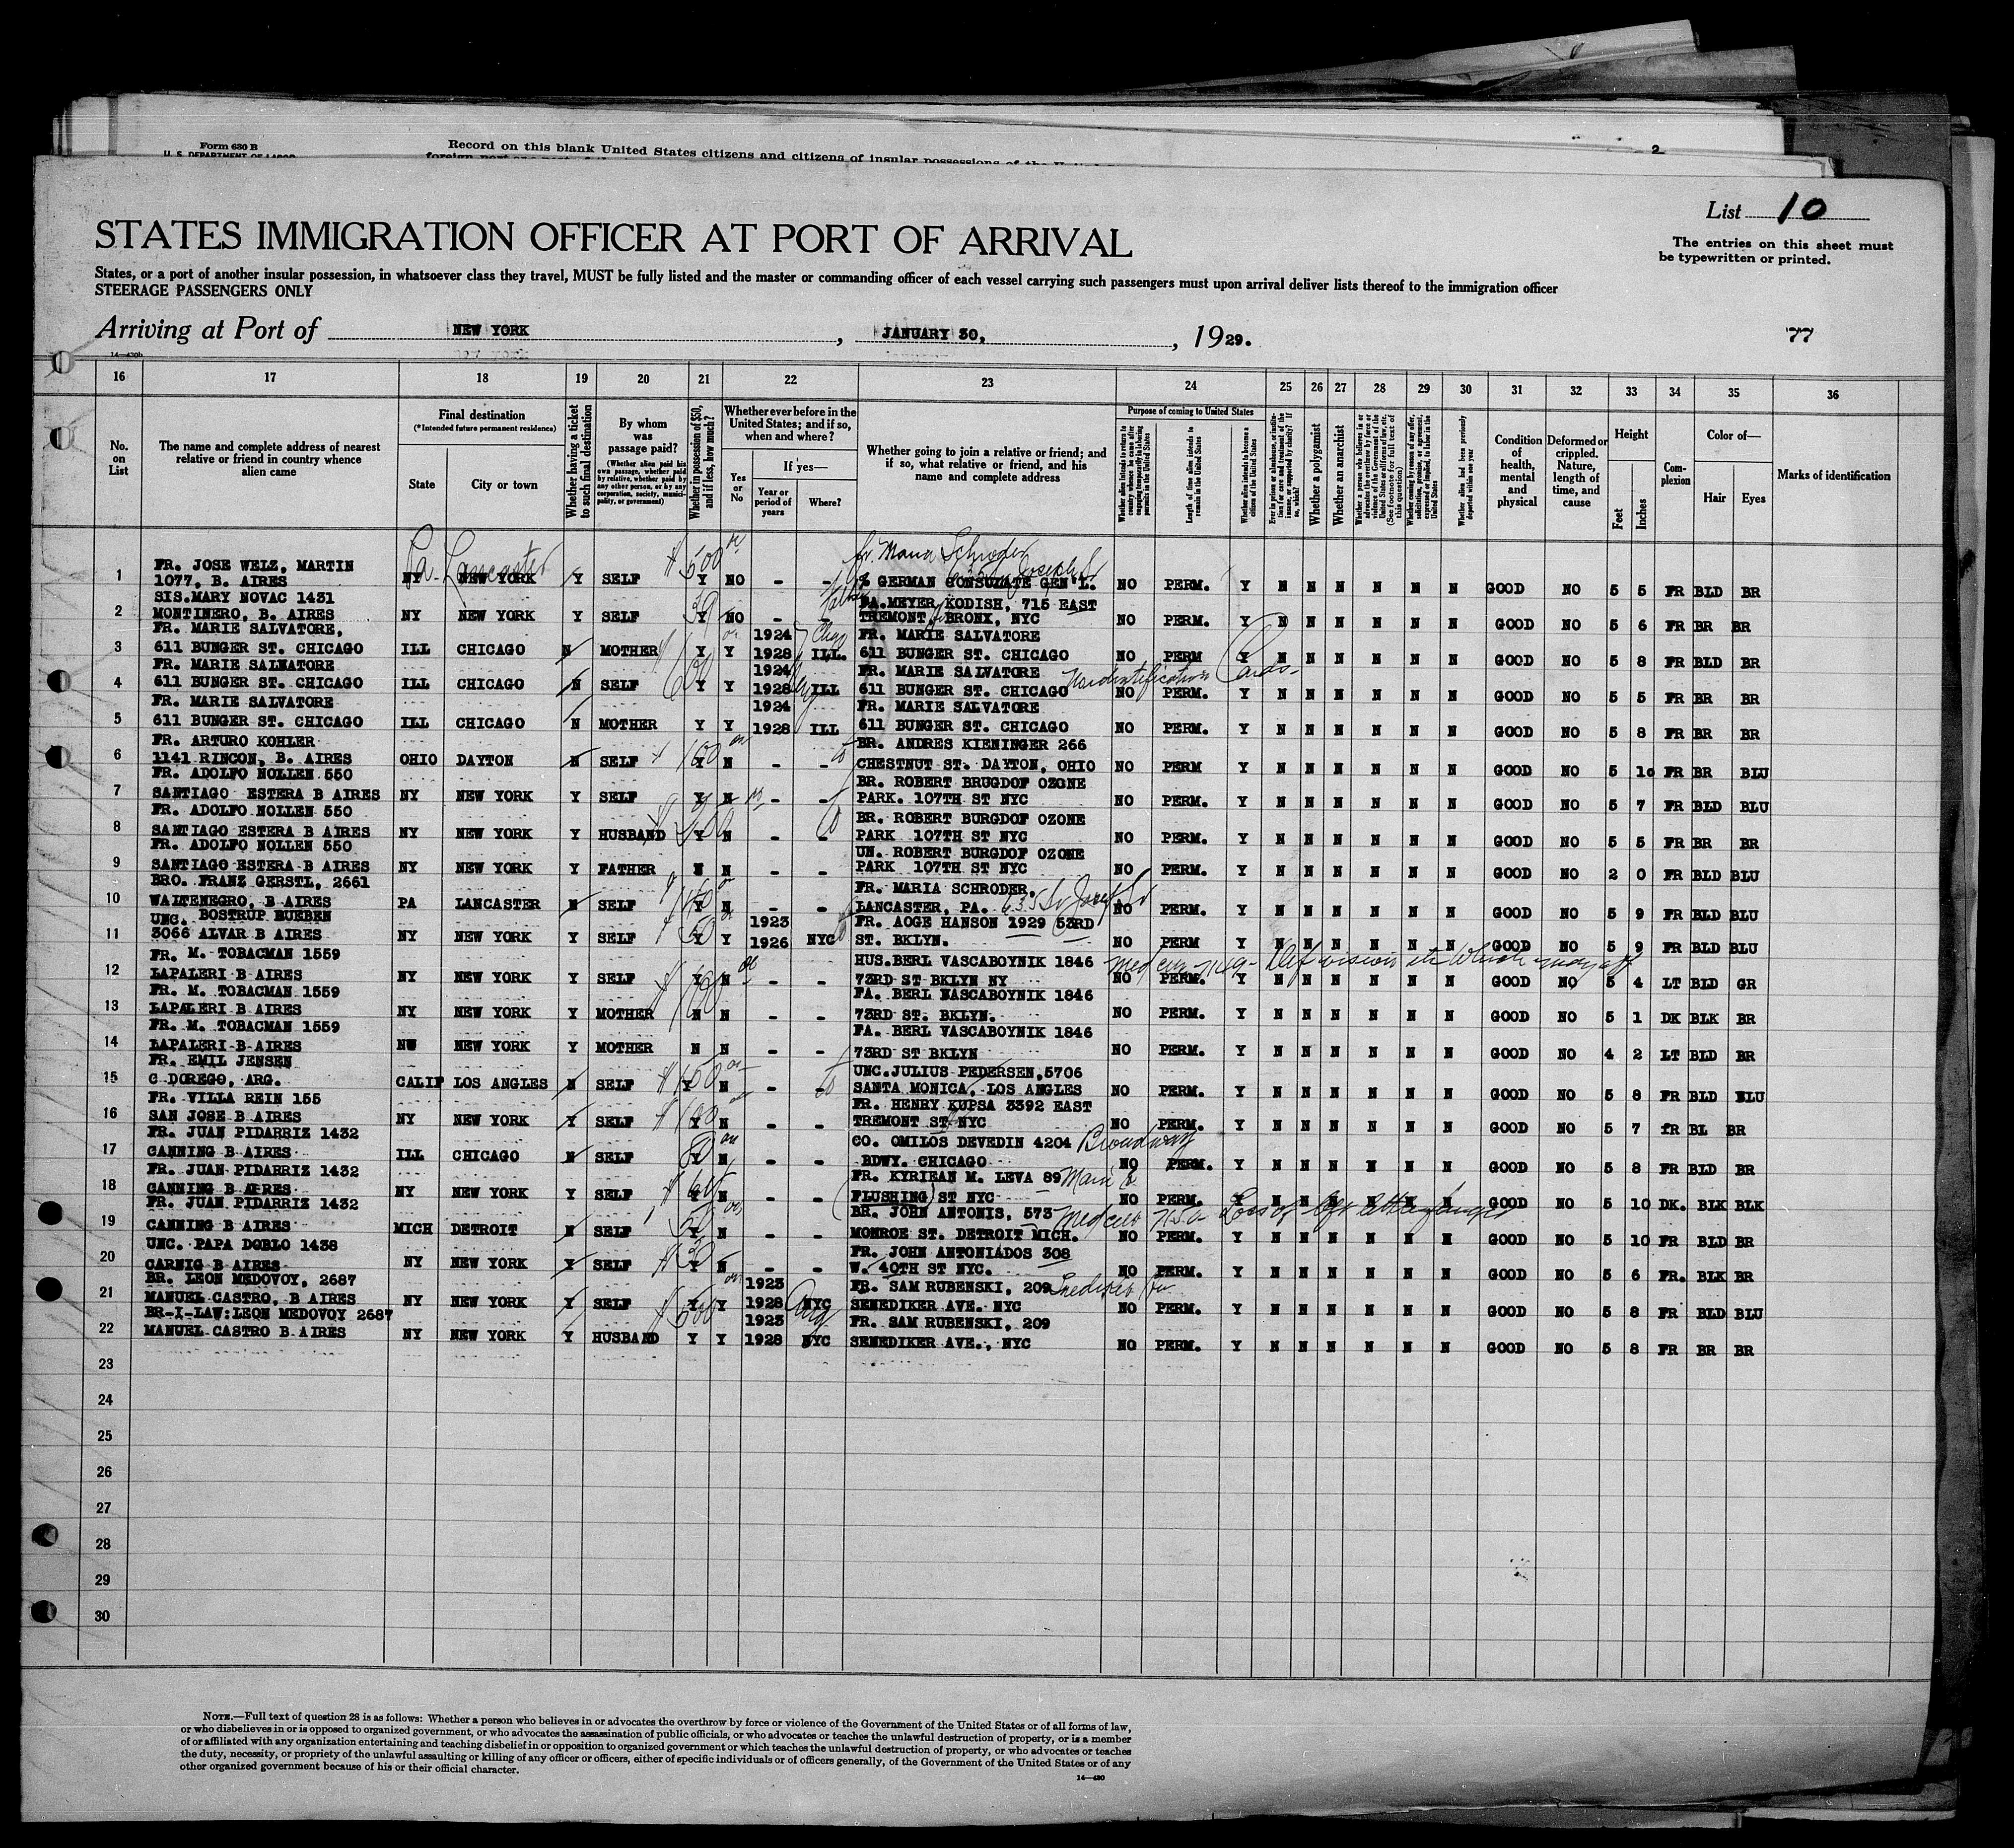 Form 630 B
U. S. DEPARTMENT OF LABOR
Record on this blank United States citizens and citizens of insular possessions of the
2
List 10
STATES IMMIGRATION OFFICER AT PORT OF ARRIVAL
The entries on this sheet must
be typewritten or printed.
States, or a port of another insular possession, in whatsoever class they travel, MUST be fully listed and the master or commanding officer of each vessel carrying such passengers must upon arrival deliver lists thereof to the immigration officer
STEERAGE PASSENGERS ONLY
Arriving at Port of NEW YORK, JANUARY 30, 1929. 77
16 17 18 19 20 21 22 23 24 25 26 27 28 29 30 31 32 33 34 35 36
No. on List
The name and complete address of nearest relative or friend in country whence alien came
Final destination
(*Intended future permanent residence)
State City or town
Whether having a ticket to such final destination
By whom was passage paid?
(Whether alien paid his own passage, whether paid by relative, whether paid by any other person, or by any corporation, society, municipality, or government)
Whether in possession of $50, and if less, how much?
Whether ever before in the United States; and if so, when and where?
Yes or No
If yes—
Year or period of years
Where?
Whether going to join a relative or friend; and if so, what relative or friend, and his name and complete address
Purpose of coming to United States
Length of time alien intends to remain in the United States
Whether alien intends to become a citizen of the United States
Whether a polygamist
Whether an anarchist
Condition of health, mental and physical
Deformed or crippled. Nature, length of time, and cause
Height
Feet Inches
Complexion
Color of—
Hair Eyes
Marks of identification
Pa. Lancaster $500 fr. Maria Schroder
FR. JOSE WELZ, MARTIN
1 1077, B. AIRES NY NEW YORK Y SELF Y NO - - % GERMAN CONSULATE GEN'L. NO PERM. Y N N N N N N GOOD NO 5 5 FR BLD BR
SIS.MARY NOVAC 1431 FA.MEYER KODISH, 715 EAST
2 MONTINERO, B. AIRES NY NEW YORK Y SELF Y NO - - TREMONT BRONX, NYC NO PERM. Y N N N N N N GOOD NO 5 6 FR BR BR
FR. MARIE SALVATORE, 1924 FR. MARIE SALVATORE
3 611 BUNGER ST. CHICAGO ILL CHICAGO N MOTHER Y Y 1928 ILL. 611 BUNGER ST. CHICAGO NO PERM Y N N N N N N GOOD NO 5 8 FR BLD BR
FR. MARIE SALVATORE 1924 FR. MARIE SALVATORE
4 611 BUNGER ST. CHICAGO ILL CHICAGO N SELF Y Y 1928 ILL 611 BUNGER ST. CHICAGO NO PERM. Y N N N N N N GOOD NO 5 5 FR BR BR
FR. MARIE SALVATORE 1924 FR. MARIE SALVATORE
5 611 BUNGER ST. CHICAGO ILL CHICAGO N MOTHER Y Y 1928 ILL 611 BUNGER ST. CHICAGO NO PERM. Y N N N N N N GOOD NO 5 8 FR BR BR
FR. ARTURO KOHLER BR. ANDRES KIENINGER 266
6 1141 RINCON, B. AIRES OHIO DAYTON N SELF Y N - - CHESTNUT ST. DAYTON, OHIO NO PERM Y N N N N N N GOOD NO 5 10 FR BR BLU
FR. ADOLFO NOLLEN 550 BR. ROBERT BRUGDOF OZONE
7 SANTIAGO ESTERA B AIRES NY NEW YORK Y SELF Y N - - PARK. 107TH ST NYC NO PERM. Y N N N N N N GOOD NO 5 7 FR BLD BLU
FR. ADOLFO NOLLEN 550 BR. ROBERT BURGDOF OZONE
8 SANTIAGO ESTERA B AIRES NY NEW YORK Y HUSBAND Y N - - PARK 107TH ST NYC NO PERM. Y N N N N N N GOOD NO 5 5 FR BR BR
FR. ADOLFO NOLLEN 550 UN. ROBERT BURGDOF OZONE
9 SANTIAGO ESTERA B AIRES NY NEW YORK Y FATHER N N - - PARK 107TH ST NYC NO PERM. Y N N N N N N GOOD NO 2 0 FR BLD BLU
BRO. FRANZ GERSTL, 2661 FR. MARIA SCHRODER,
10 WALTENEGRO, B AIRES PA LANCASTER N SELF Y N - - LANCASTER, PA. NO PERM. Y N N N N N N GOOD NO 5 9 FR BLD BLU
UNC. BOSTRUP RUEBEN 1923 FR. AOGE HANSON 1929 53RD
11 3066 ALVAR B AIRES NY NEW YORK Y SELF Y Y 1926 NYC ST. BKLYN. NO PERM Y N N N N N N GOOD NO 5 9 FR BLD BLU
FR. M. TOBACMAN 1559 HUS.BERL VASCABOYNIK 1846
12 LAPALERI B AIRES NY NEW YORK Y SELF Y N - - 73RD ST BKLYN NY NO PERM. Y N N N N N N GOOD NO 5 4 LT BLD GR
FR. M. TOBACMAN 1559 FA. BERL VASCABOYNIK 1846
13 LAPALERI B AIRES NY NEW YORK Y MOTHER N N - - 73RD ST. BKLYN. NO PERM. Y N N N N N N GOOD NO 5 1 DK BLK BR
FR. M. TOBACMAN 1559 FA. BERL VASCABOYNIK 1846
14 LAPALERI B AIRES NW NEW YORK Y MOTHER N N - - 73RD ST BKLYN NO PERM. Y N N N N N N GOOD NO 4 2 LT BLD BR
FR. EMIL JENSEN UNC.JULIUS PEDERSEN,5706
15 C DOREGO, ARG. CALIF LOS ANGLES N SELF $150 Y N - SANTA MONICA, LOS ANGLES NO PERM. Y N N N N N N GOOD NO 5 8 FR BLD BLU
FR. VILLA REIN 155 FR. HENRY KUPSA 3392 EAST
16 SAN JOSE B AIRES NY NEW YORK Y SELF $100 Y N - - TREMONT ST NYC NO PERM. Y N N N N N N GOOD NO 5 7 fR BL BR
FR. JUAN PIDARRIZ 1432 CO. OMILOS DEVEDIN 4204 Broadway
17 CANNING B AIRES ILL CHICAGO N SELF Y N - - BDWY. CHICAGO NO PERM. Y N N N N N N GOOD NO 5 8 FR BLD BR
FR. JUAN PIDARRIZ 1432 FR. KYRIEAN M. LEVA 89
18 CANNING B AFRES NY NEW YORK Y SELF Y N - - (FLUSHING) ST NYC NO PERM. Y N N N N N N GOOD NO 5 10 DK. BLK BLK
FR. JUAN PIDARRIZ 1432 BR. JOHN ANTONIS, 573
19 CANNING B AIRES MICH DETROIT N SELF Y N - - MONROE ST. DETROIT MICH. NO PERM. Y N N N N N N GOOD NO 5 10 FR BLD BR
UNC. PAPA DOBLO 1438 FR. JOHN ANTONIADOS 308
20 CARNIG B AIRES NY NEW YORK Y SELF Y N - - W. 40TH ST NYC. NO PERM. Y N N N N N N GOOD NO 5 6 FR. BLK BR
BR. LEON MEDOVOY, 2687 1923 FR. SAM RUBENSKI, 209
21 MANUEL CASTRO, B AIRES NY NEW YORK Y SELF Y Y 1928 NYC SENEDIKER AVE. NYC NO PERM. Y N N N N N N GOOD NO 5 8 FR BLD BLU
BR-I-LAW:LEON MEDOVOY 2687 1923 FR. SAM RUBENSKI, 209
22 MANUEL CASTRO B AIRES NY NEW YORK Y HUSBAND Y Y 1928 NYC SENEDIKER AVE., NYC NO PERM. Y N N N N N N GOOD NO 5 8 FR BR BR
23
24
25
26
27
28
29
30
NOTE.—Full text of question 28 is as follows: Whether a person who believes in or advocates the overthrow by force or violence of the Government of the United States or of all forms of law,
or who disbelieves in or is opposed to organized government, or who advocates the assassination of public officials, or who advocates or teaches the unlawful destruction of property, or is a member
of or affiliated with any organization entertaining and teaching disbelief in or opposition to organized government or which teaches the unlawful destruction of property, or who advocates or teaches
the duty, necessity, or propriety of the unlawful assaulting or killing of any officer or officers, either of specific individuals or of officers generally, of the Government of the United States or of any
other organized government because of his or their official character.
14—430